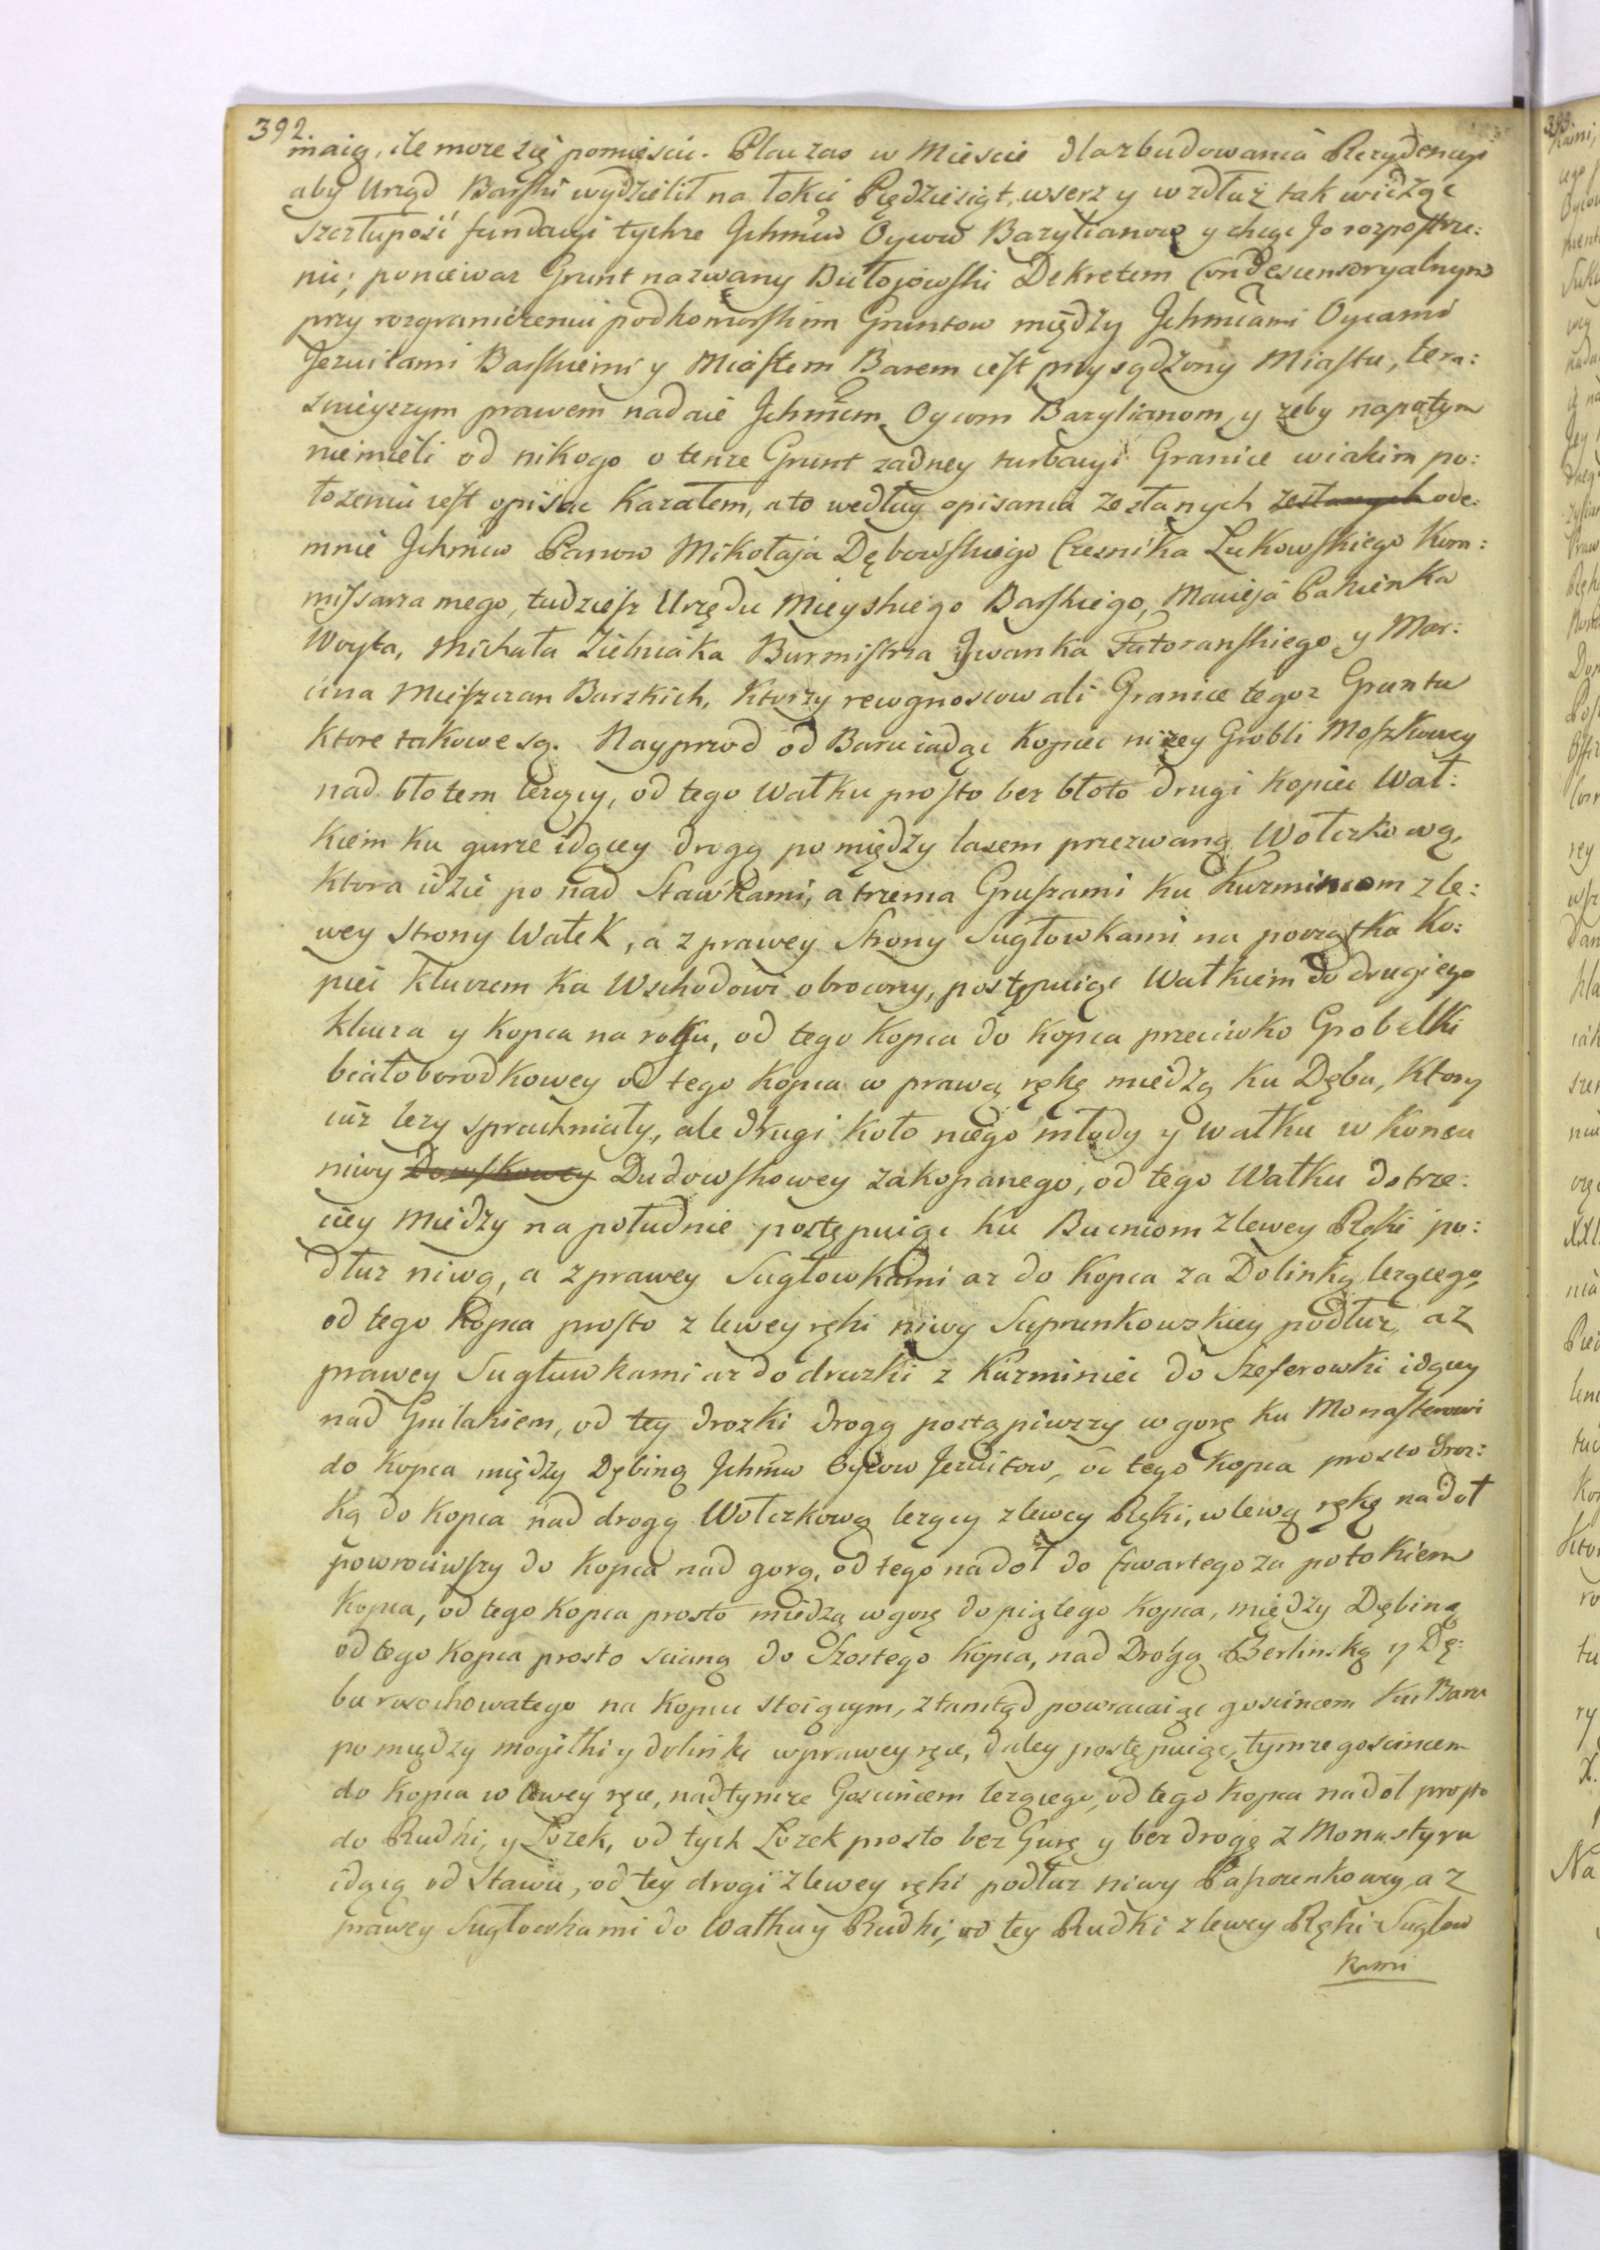 392.
maią, ile może się pomieścić. Plac zas w Miescie dla zbudowania Rezydencyi
aby Urząd Barski wydzielił na łokci Piędziesiąt, wszerz y wzdłuż tak widząc
szczupłość fundacyi tychże Jchmśw Oycow Bazylianow y chcąc Jo rozpostrze:
nić; ponieważ Grunt nazwany Bułojowski Dekretem Condescensoryalnym
przy rozgraniczeniu podkomorskim Gruntow między Jchmściami Oycami
Jezuitami Barskiemi y Miastem Barem iest przysądzony Miastu, tera:
znieyszym prawem nadaie Jchmścm Oycom Bazylianom, y żeby napotym
niemieli od nikogo o tenże Grunt żadney turbacyi Granice wiakim po:
łożeniu iest opisac Kazałem, a to według opisania zesłanych zesłanych ode:
mnie Jchmciw Panow Mikołaja Dębowskiego Czesnika Lukowskiego Kom:
missarza mego, tudziesz Urzędu Mieyskiego Barskiego, Macieja Pakienka
Woyta, Michała Zielniaka Burmistrza Jwanka Fatoranskiego y Mar:
cina Mieszczan Barzkich, Ktorzy rewgnoscowali Granice tegoz Gruntu
Ktore takowe są. Nayprzod od Baru iadąc Kopiec niżey Grobli Moszkowey
nad błotem leżący, od tego Wałku prosto bez błoto drugi Kopiec Wał:
kiem ku gurze idącey drogą pomiędzy lasem przezwaną Wołczkową,
Ktora idzie ponad Stawkami, a trzema Gruszami ku Kuzmincom z le:
wey strony Wałek, a z prawey Strony Sugłowkami na początku Ko:
piec kluczem ku Wschodowi obrocony, postępuiąc Wałkiem do drugiego
klucza y Kopca na rogu, od tego Kopca do Kopca przeciwko Grobelki
białoborodkowey od tego Kopca w prawą rękę miedzą ku Dębu, Ktory
iuż leży spruchniały, ale drugi koło niego młody y wałku w koncu
niwy Dowskowey Dudowskowey zakopanego, od tego Wałku do trze:
ciey Miedzy na południe postępuiąc ku Bucniom z lewey Ręki po:
dłuz niwą, a z prawey Sugłowkami aż do Kopca za Dolinką leżącego,
od tego Kopca prosto z lewey ręki niwy Suprunkowzkiey podłuz, a z
prawey Sugłuwkami aż do druzki z Kuzminiec do Szeferowki idącey
nad Gniłakiem, od tey drozki drogą postąpiwszy w gorę ku Monasterowi
do Kopca między Dębiną Jchmw Oycow Jezuitow, od tego Kopca prosto droz:
ką do Kopca nad drogą Wołczkową leżący z lewey Ręki, w lewą rękę na doł
powrociwszy do Kopca nad gorą, od tego na doł do Czwartego za potokiem
Kopca, od tego Kopca prosto miedzą w gorę do piątego Kopca, między Dębiną
od tego Kopca prosto scianą do Szostego Kopca, nad Drogą Berlinską y Dę:
bu rosochowatego na Kopcu stoiącym, ztamtąd powracaiąc goscincem ku Baru
pomiędzy mogiłki y dolinkę wprawey ręce, daley postępuiąc, tymże goscincem
do Kopca w lewey ręce, nad tymże Goscincem leżącego, od tego Kopca na doł prosto
do Rudki, y Lozek, od tych Lozek prosto bez Gurę y bez drogę z Monastyru
idącą od Stawu, od tey drogi z lewey ręki podłuz niwy Paszunkowey, a z
prawey Sugłowkami do Wałku y Rudki, od tey Rudki z lewey Ręki Sugłow
kami